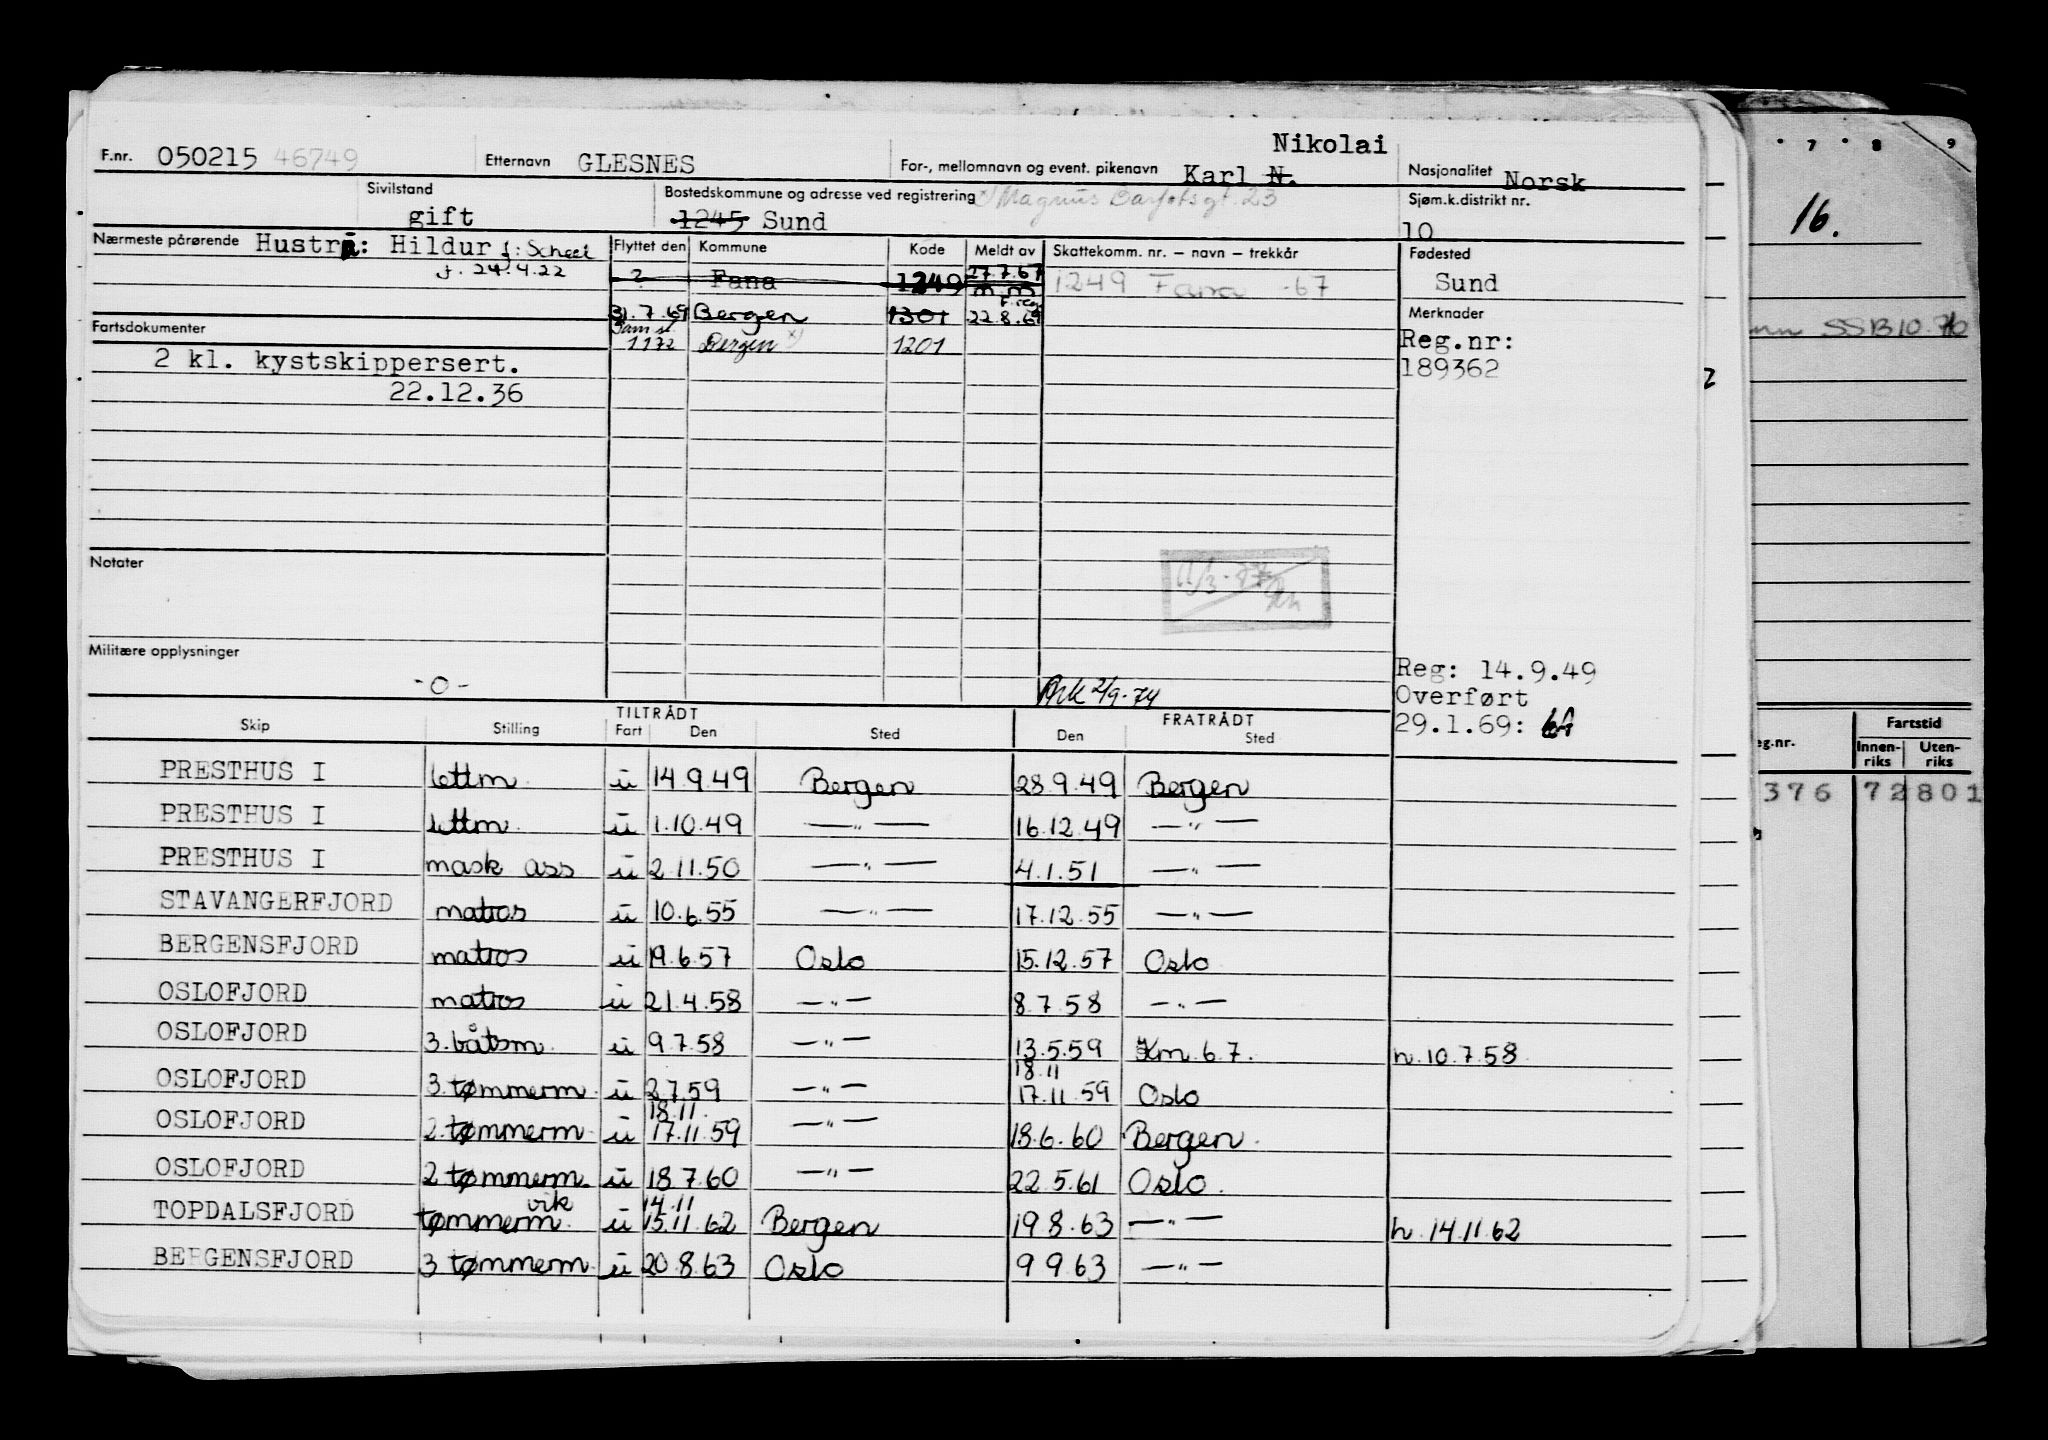 Nikolai
F.nr. 050215 46749 Etternavn GLESNES For-, mellomnavn og event. pikenavn Karl N. Nasjonalitet Norsk
Sivilstand gift Bostedskommune og adresse ved registrering x) Magnus Barfotsgt. 23 Sjøm.k.distrikt nr.
1245 Sund 10
Nærmeste pårørende Hustru: Hildur f: Scheel Flyttet den Kommune Kode Meldt av Skattekomm. nr. – navn – trekkår Fødested
f. 24.4.22 ? Fana 1249 27.7.67 1249 Fana -67 Sund
m.m
31.7.69 Bergen 1301 22.8.69 Merknader
Fartsdokumenter Reg.nr:
1172 Bergen x) 1201
2 kl. kystskippersert. 189362
22.12.36
Notater
Militære opplysninger
-0-
2/9-74
Reg: 14.9.49
Overført
29.1.69:
TILTRÅDT FRATRÅDT
Skip Stilling Fart Den Sted Den Sted
PRESTHUS I lettm. u 14.9.49 Bergen 28.9.49 Bergen
PRESTHUS I lettm. u 1.10.49 —"— 16.12.49 —"—
PRESTHUS I mask ass u 2.11.50 —"— 4.1.51 —"—
STAVANGERFJORD matros u 10.6.55 —"— 17.12.55 —"—
BERGENSFJORD matros u 19.6.57 Oslo 15.12.57 Oslo
OSLOFJORD matros u 21.4.58 —"— 8.7.58 —"—
OSLOFJORD 3.båtsm. u 9.7.58 —"— 13.5.59 Km. 6.7. h. 10.7.58
18.11
OSLOFJORD 3.tømmerm. u 2.7.59 —"— 17.11.59 Oslo
18.11.
OSLOFJORD 2.tømmerm. u 17.11.59 —"— 18.6.60 Bergen.
OSLOFJORD 2 tømmerm. u 18.7.60 —"— 22.5.61 Oslo.
vik 14.11
TOPDALSFJORD tømmerm. u 15.11.62 Bergen 19.8.63 —"— h. 14.11.62
BERGENSFJORD 3 tømmerm. u 20.8.63 Oslo 9.9.63 —"—
7 8 9
16.
SSB 10.76
2
eg.nr. Fartstid
Innen-riks Uten-riks
376 72 801